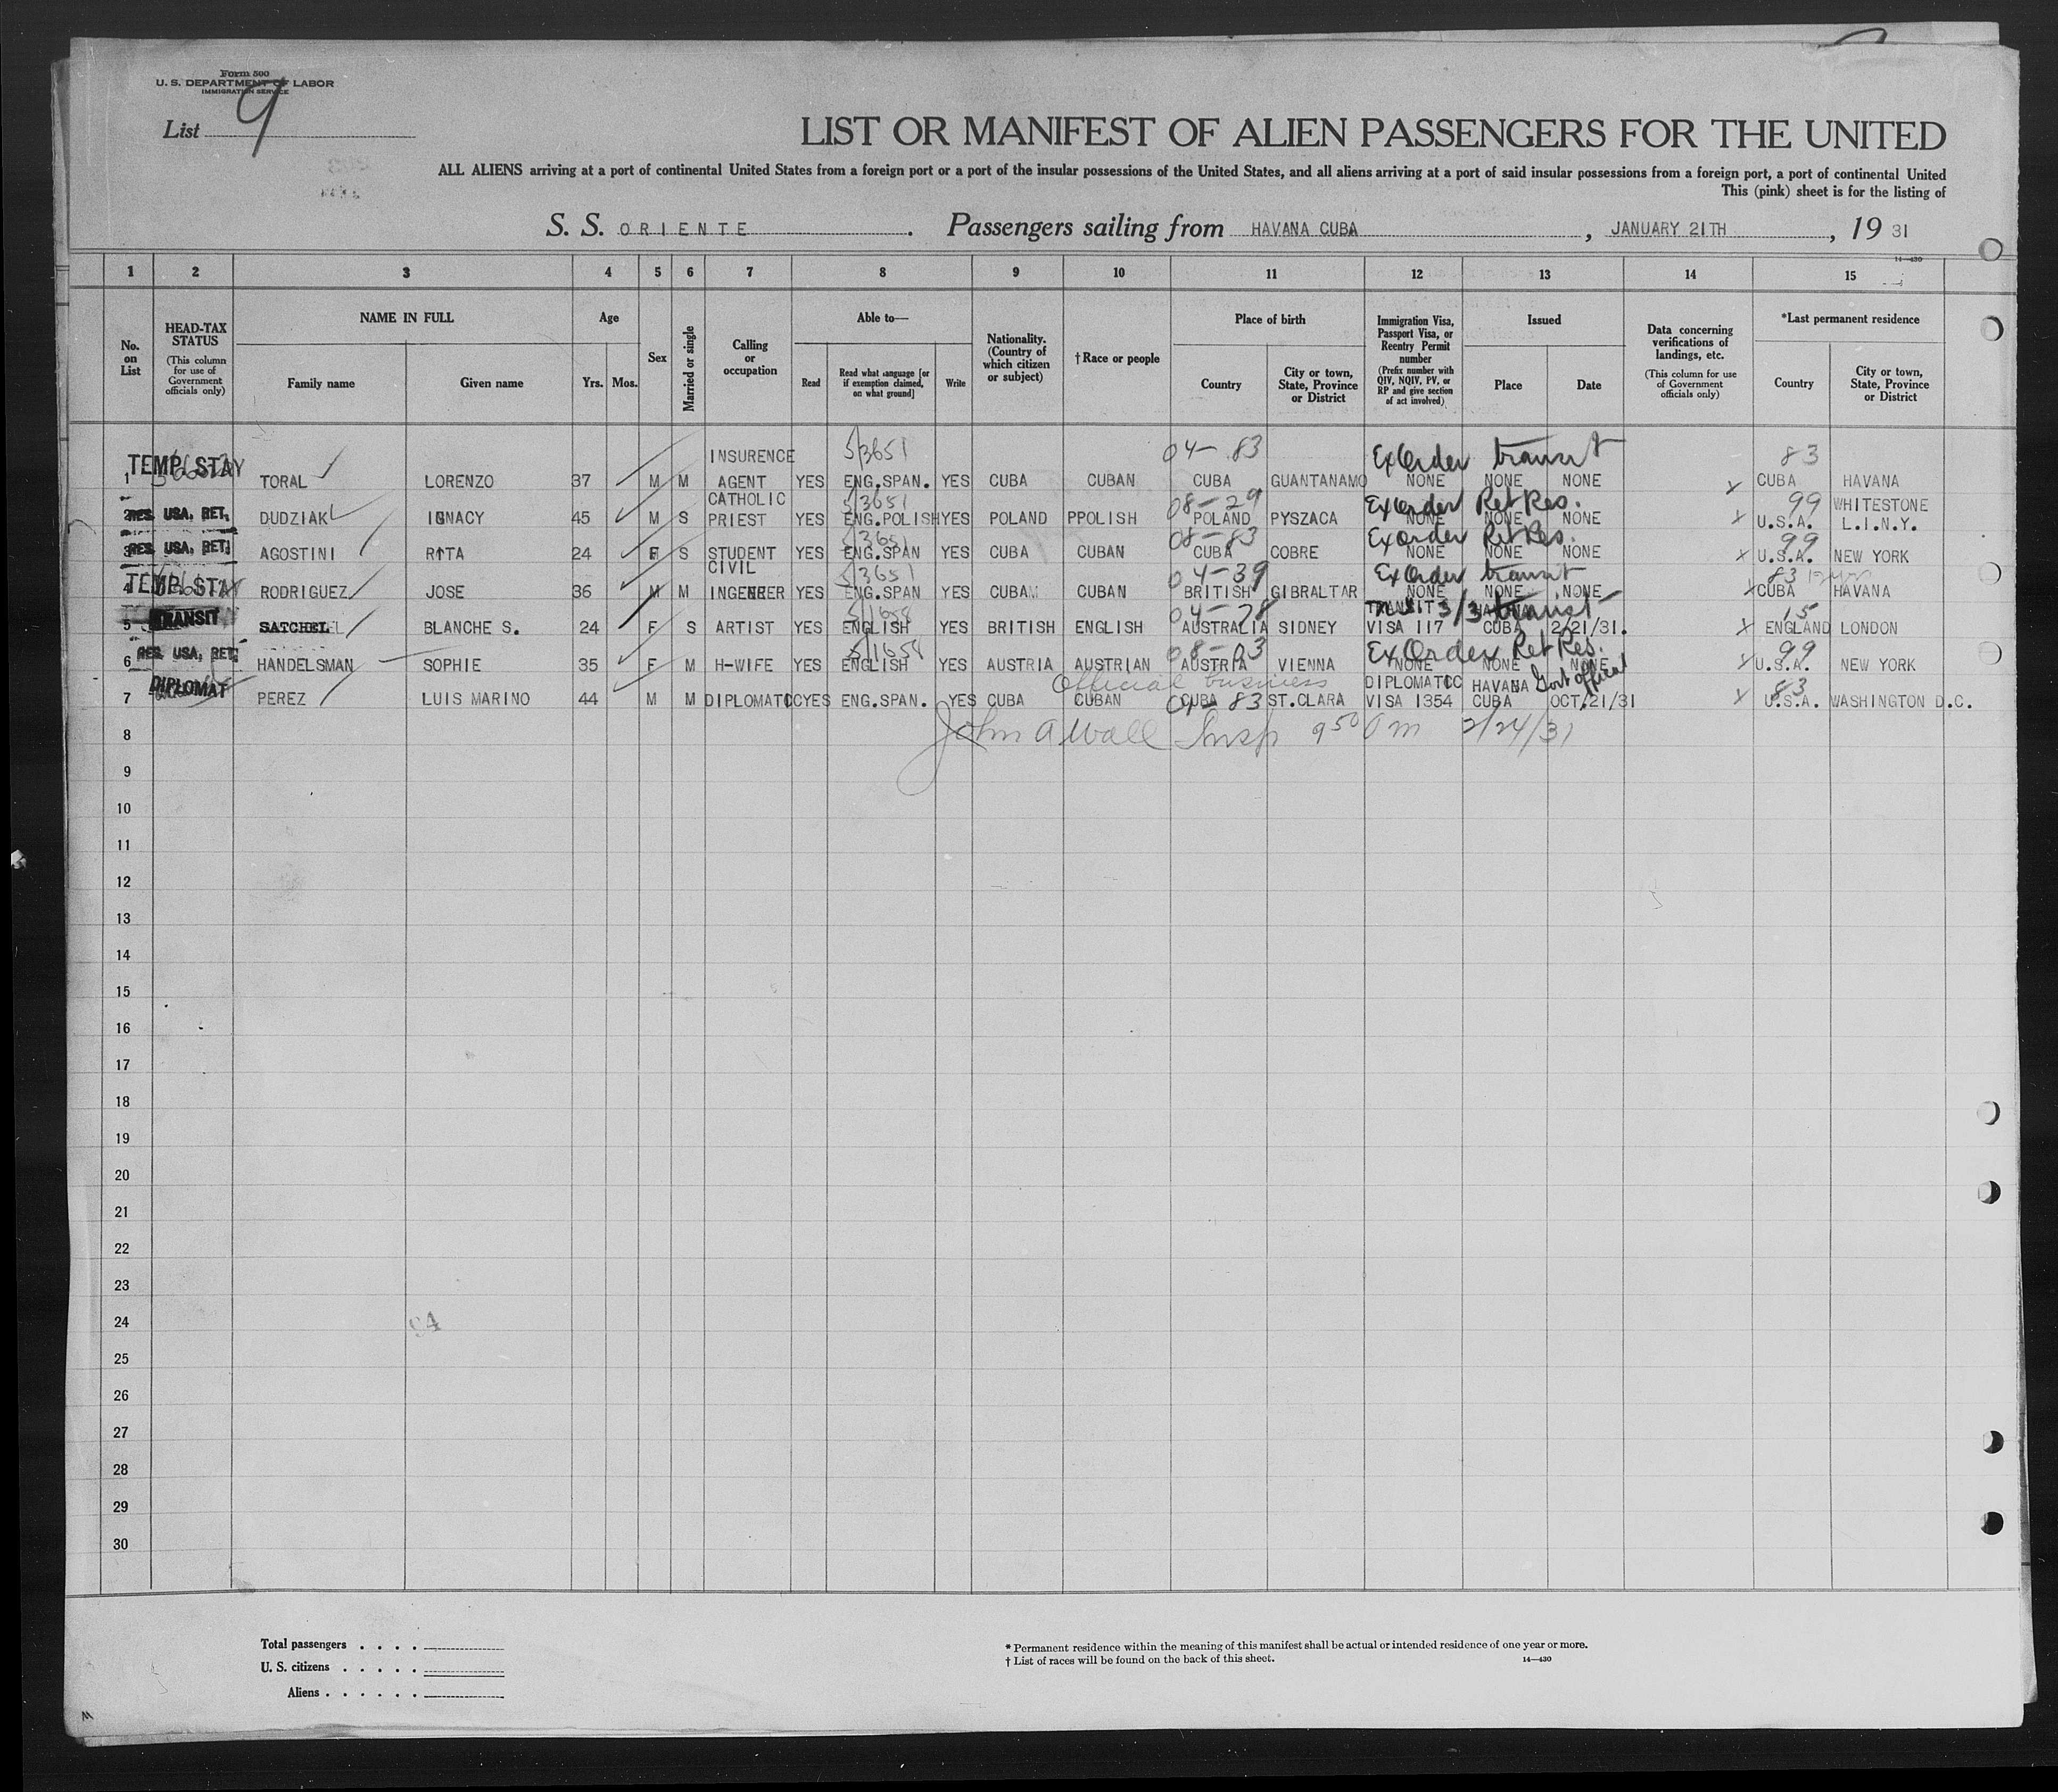 Form 500
U. S. DEPARTMENT OF LABOR
IMMIGRATION SERVICE
List 9
LIST OR MANIFEST OF ALIEN PASSENGERS FOR THE UNITED
ALL ALIENS arriving at a port of continental United States from a foreign port or a port of the insular possessions of the United States, and all aliens arriving at a port of said insular possessions from a foreign port, a port of continental United
This (pink) sheet is for the listing of
S. S. ORIENTE. Passengers sailing from HAVANA CUBA, JANUARY 21TH, 19 31
14—430
1 2 3 4 5 6 7 8 9 10 11 12 13 14 15
No. on List
HEAD-TAX STATUS (This column for use of Government officials only)
NAME IN FULL
Family name Given name
Age
Yrs. Mos.
Sex
Married or single
Calling or occupation
Able to—
Read
Read what language [or if exemption claimed, on what ground]
Write
Nationality. (Country of which citizen or subject)
† Race or people
Place of birth
Country
City or town, State, Province or District
Immigration Visa, Passport Visa, or Reentry Permit number (Prefix number with QIV, NQIV, PV, or RP and give section of act involved)
Issued
Place Date
Data concerning verifications of landings, etc. (This column for use of Government officials only)
*Last permanent residence
Country
City or town, State, Province or District
INSURENCE 5/3651 04-83 Ex Order transit 83
TEMP. STAY
1 TORAL LORENZO 37 M M AGENT YES ENG.SPAN. YES CUBA CUBAN CUBA GUANTANAMO NONE NONE NONE X CUBA HAVANA
CATHOLIC 5/3651 08-29 Ex Order Ret Res. 99 WHITESTONE
2 RES. USA, RET. DUDZIAK IGNACY 45 M S PRIEST YES ENG.POLISH YES POLAND PPOLISH POLAND PYSZACA NONE NONE NONE X U.S.A. L.I.N.Y.
08-83 Ex Order Ret Res. 99
3 RES. USA, RET. AGOSTINI RITA 24 F S STUDENT YES ENG.SPAN YES CUBA CUBAN CUBA COBRE NONE NONE NONE X U.S.A. NEW YORK
CIVIL 5/3651 04-39 Ex Order transit 83
TEMP. STAY
4 RODRIGUEZ JOSE 36 M M INGENEER YES ENG.SPAN YES CUBA CUBAN BRITISH GIBRALTAR NONE NONE NONE X CUBA HAVANA
5/11654 04-78 TRANSIT 3/3 HAVANA transit 15
TRANSIT
5 SATCHEL BLANCHE S. 24 F S ARTIST YES ENGLISH YES BRITISH ENGLISH AUSTRALIA SIDNEY VISA 117 CUBA 2/21/31. X ENGLAND LONDON
RES. USA, RET. 5/11654 08-03 Ex Order Ret Res. 99
6 HANDELSMAN SOPHIE 35 F M H-WIFE YES ENGLISH YES AUSTRIA AUSTRIAN AUSTRIA VIENNA NONE NONE NONE X U.S.A. NEW YORK
DIPLOMAT Official business DIPLOMATIC HAVANA Govt official 83
7 PEREZ LUIS MARINO 44 M M DIPLOMATIC YES ENG.SPAN. YES CUBA CUBAN CUBA 04-83 ST.CLARA VISA 1354 CUBA OCT/21/31 X U.S.A. WASHINGTON D.C.
8 John A Wall Insp 9 50 am 2/24/31
9
10
11
12
13
14
15
16
17
18
19
20
21
22
23
24 94
25
26
27
28
29
30
Total passengers . . . .
U. S. citizens . . . . .
Aliens . . . . . .
* Permanent residence within the meaning of this manifest shall be actual or intended residence of one year or more.
† List of races will be found on the back of this sheet.
14—430